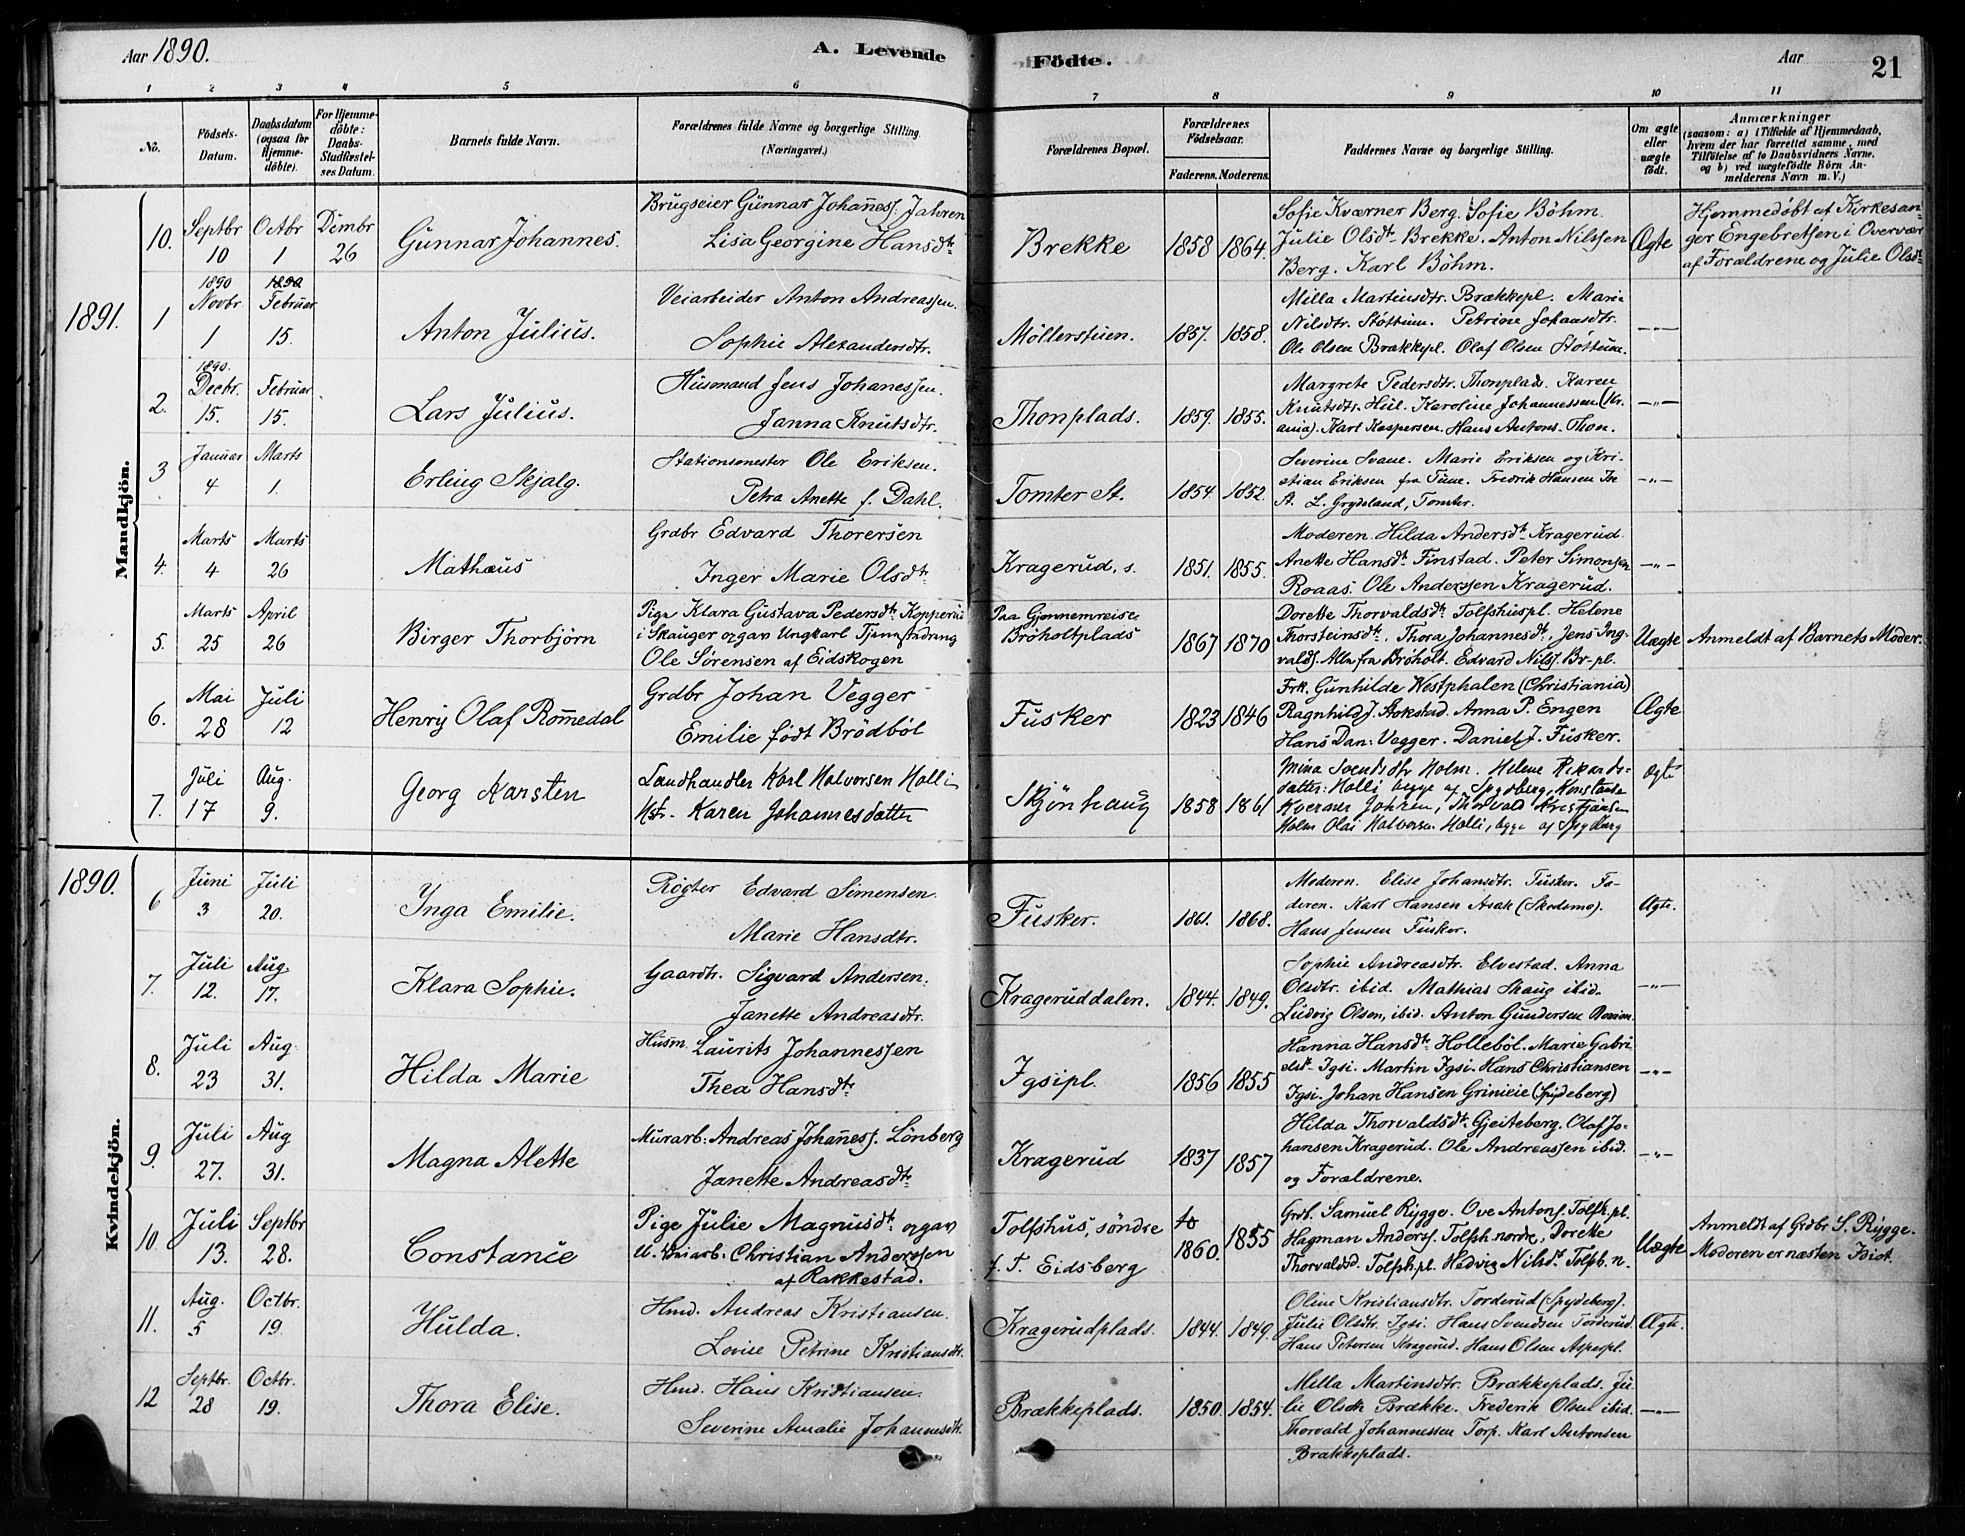 Aar 1890.
A. Levende Födte.
Aar
21
1 2 3 4 5 6 7 8 9 10 11
No.
Födsels-Datum.
Daabsdatum (ogsaa for Hjemme-döbte).
For Hjemme-döbte: Daabs-Stadfæstel-ses Datum.
Barnets fulde Navn.
Forældrenes fulde Navne og borgerlige Stilling. (Næringsvei.)
Forældrenes Bopæl.
Forældrenes Födselsaar.
Faderens. Moderens.
Faddernes Navne og borgerlige Stilling.
Om ægte eller uægte födt.
Anmærkninger
(saasom: a) i Tilfælde af Hjemmedaab, hvem der har forrettet samme, med Tilföielse af to Daabsvidners Navne, og b) ved uægtefödte Börn An-melderens Navn m. V.)
Mandkjön.
10. Septbr 10 Octbr 1 Dcmbr 26
Gunnar Johannes.
Brugseier Gunnar Johannesf. Jahren
Lisa Georgine Hansdtr
Brekke 1858 1864.
Sofie Kværner Berg. Sofie Böhm.
Julie Olsdtr Brekke. Anton Nilssen
Berg. Karl Böhm.
Ægte
Hjemmedøbt af Kirkesan-
ger Engebretsen i Overvær
af Forældrene og Julie Olsdtr
1891.
1 1890 Novbr 1 1890 Februar 15.
Anton Julius.
Veiarbeider Anton Andreassen.
Sophie Alexandersdtr.
Möllerstuen. 1857. 1858.
Milla Martinsdtr. Brækkepl. Marie
Nilsdtr. Støttum. Petrine Johansdtr.
Ole Olsen Brækkepl. Olaf Olsen Støttum.
—"—
2. 1890. Decbr. 15. Februar 15.
Lars Julius.
Husmand Jens Johanessen.
Janna Knutsdtr.
Thonplads. 1859. 1855.
Margrete Pedersdtr. Thonplads. Karen
Knutsdtr. Hül. Karoline Johannessen (Kr-
ania). Karl Kaspersen. Hans Antons. Thon.
—"—
3 Januar 4 Marts 1.
Erling Skjalg.
Stationsmester Ole Eriksen.
Petra Anette f. Dahl.
Tomter St. 1854 1852.
Severine Svane. Marie Eriksen og Kri-
stian Eriksen fra Tune. Fredrik Hansen
St. L. Grydeland, Tomter.
—"—
4. Marts 4 Marts 26
Mathæus
Grdbr Edvard Thorersen
Inger Marie Olsdtr
Kragerud, s. 1851. 1855.
Moderen. Hilda Andersdtr Kragerud.
Anette Hansdtr Finstad. Peter Simonsen
Roaas. Ole Anderssen Kragerud.
—"—
5. Marts 25 April 26
Birger Thorbjörn
Pige Klara Gustava Pedersdtr Kopperud
i Skauger og gav Ungkarl
Ole Sörensen af Eidskogen
Paa Gjennemreise
Bröholtplads 1867 1870
Dorette Thorvaldsdtr Tolfshuspl. Helene
Thorsteinsdtr, Thora Johannesdtr, Jens Ing-
valdf. Alle fra Bröholt. Edvard Nilsf. Br-pl.
Uægte
Anmeldt af Barnets Moder.
6. Mai 28 Juli 12
Henry Olaf Romedal
Grdbr Johan Vegger
Emilie födt Brödböl
Fusker 1823 1846
Frk. Gunhilde Westphalen (Christiania)
Ragnhild J. Stokstad. Anna P. Engen
Hans Dan: Vegger. Daniel J. Fusker.
Ægte
7. Juli 17 Aug. 9.
Georg Karsten
Landhandler Karl Halvorsen Holli
Hstr. Karen Johannesdatter
Skjönhaug 1858 1861
Mina Svendsdtr Holm. Helene Rikards-
datter: Holli begge af Spydberg, Konstanse
Kværner Johren, Thorvald Kristjansen
Holm Olai Halvorsen Holli, begge af Spydberg
Ægte
1890.
Kvindekjön.
6 Juni 3 Juli 20.
Inga Emilie.
Røgter Edvard Simensen.
Marie Hansdtr.
Fusker. 1861. 1868.
Moderen. Elise Johansdtr. Fusker. Fa-
deren. Karl Hansen Asak (Skedsmo).
Hans Jensen Fusker.
Ægte.
7. Juli 12. Aug. 17.
Klara Sophie.
Gaardbr. Sigvard Andersen.
Janette Andreasdtr.
Krageruddalen. 1844. 1849.
Sophie Andreasdtr. Elvestad. Anna
Olsdtr. ibid. Mathias Skaug ibid.
Ludvig Olsen, ibid. Anton Gundersen
—"—
8. Juli 23 Aug. 31.
Hilda Marie
Husm. Laurits Johannessen
Thea Hansdtr
Igsipl. 1856 1855
Hanna Hansdtr Holleböl. Marie Gabri
elsdtr Igsi. Martin Igsi. Hans Christiansen
Igsi. Johan Hansen Grinieie (Spydeberg)
—"—
9. Juli 27. Aug 31.
Magna Alette
Murarb: Andreas Johannesf. Lönberg
Janette Andreasdtr
Kragerud 1837 1857
Hilda Thorvaldsdtr Gjeiteberg. Olaf Jo-
hansen Kragerud. Ole Andreassen ibid.
og Forældrene.
—"—
10. Juli 13. Septbr 28.
Constance
Pige Julie Magnusdtr og gav
U. Veiarb: Christian Anderssen
af Rakkestad.
Tolfshus, söndre
f. T. Eidsberg
1860. 1855
Grdb. Samuel Rygge. Ove Antonf. Tolfh.pl.
Hagman Andersf. Tolfsh. nordre, Dorette
Thorvaldsd. Tolfsh.pl. Hedvig Nilsdtr Tolfsh. n-
Uægte
Anmeldt af Grdbr S. Rygge.
Moderen er næsten Idiot.
11. Aug. 5 Octbr. 19.
Hulda.
Hmd. Andreas Kristiansen.
Lovise Petrine Kristiansdtr.
Kragerudplads. 1844. 1849.
Oline Kristiansdtr. Torderud (Spydeberg).
Julie Olsdtr. Igsi. Hans Svendsen Torderud.
Hans Petersen Kragerud. Hans Olsen Aspepl.
Ægte.
12 Septbr. 28 Octbr. 19.
Thora Elise.
Hmd. Hans Kristiansen.
Severine Amalie Johannesdtr.
Brækkeplads. 1850. 1854.
Milla Martinsdtr. Brækkeplads. Ju-
lie Olsdtr Brække. Frederik Olsen ibid.
Thorvald Johannessen Torp. Karl Antonsen
Brækkeplads.
—"—